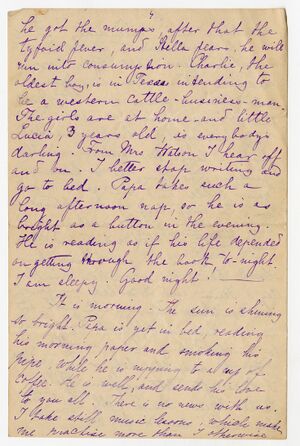 4
he got the mumps after that the
tyfoid fever, and Hilla fears he will
run into consumption. Charlie, the
oldest boy, is in Texas intending to
be a western cattle-business-man.
The girls are at home and little
Lucia, 3 years old, is everybody's
darling. From Mrs Watson I hear off
and on. I better stop writing and
go to bed. Papa takes such a
long afternoon nap so he is as
bright as a button in the evening.
He is reading as if his life depended
on getting through the book to-night.
I am sleepy. Good night! —
It is morning. The sun is shining
so bright. Papa is yet in bed, reading
his morning paper and smoking his
pipe while he is enjoying to a cup of
coffee. He is well, and sends his love
to you all. There is no news with us.
I take still music lessons, which makes
me practise more than I otherwise